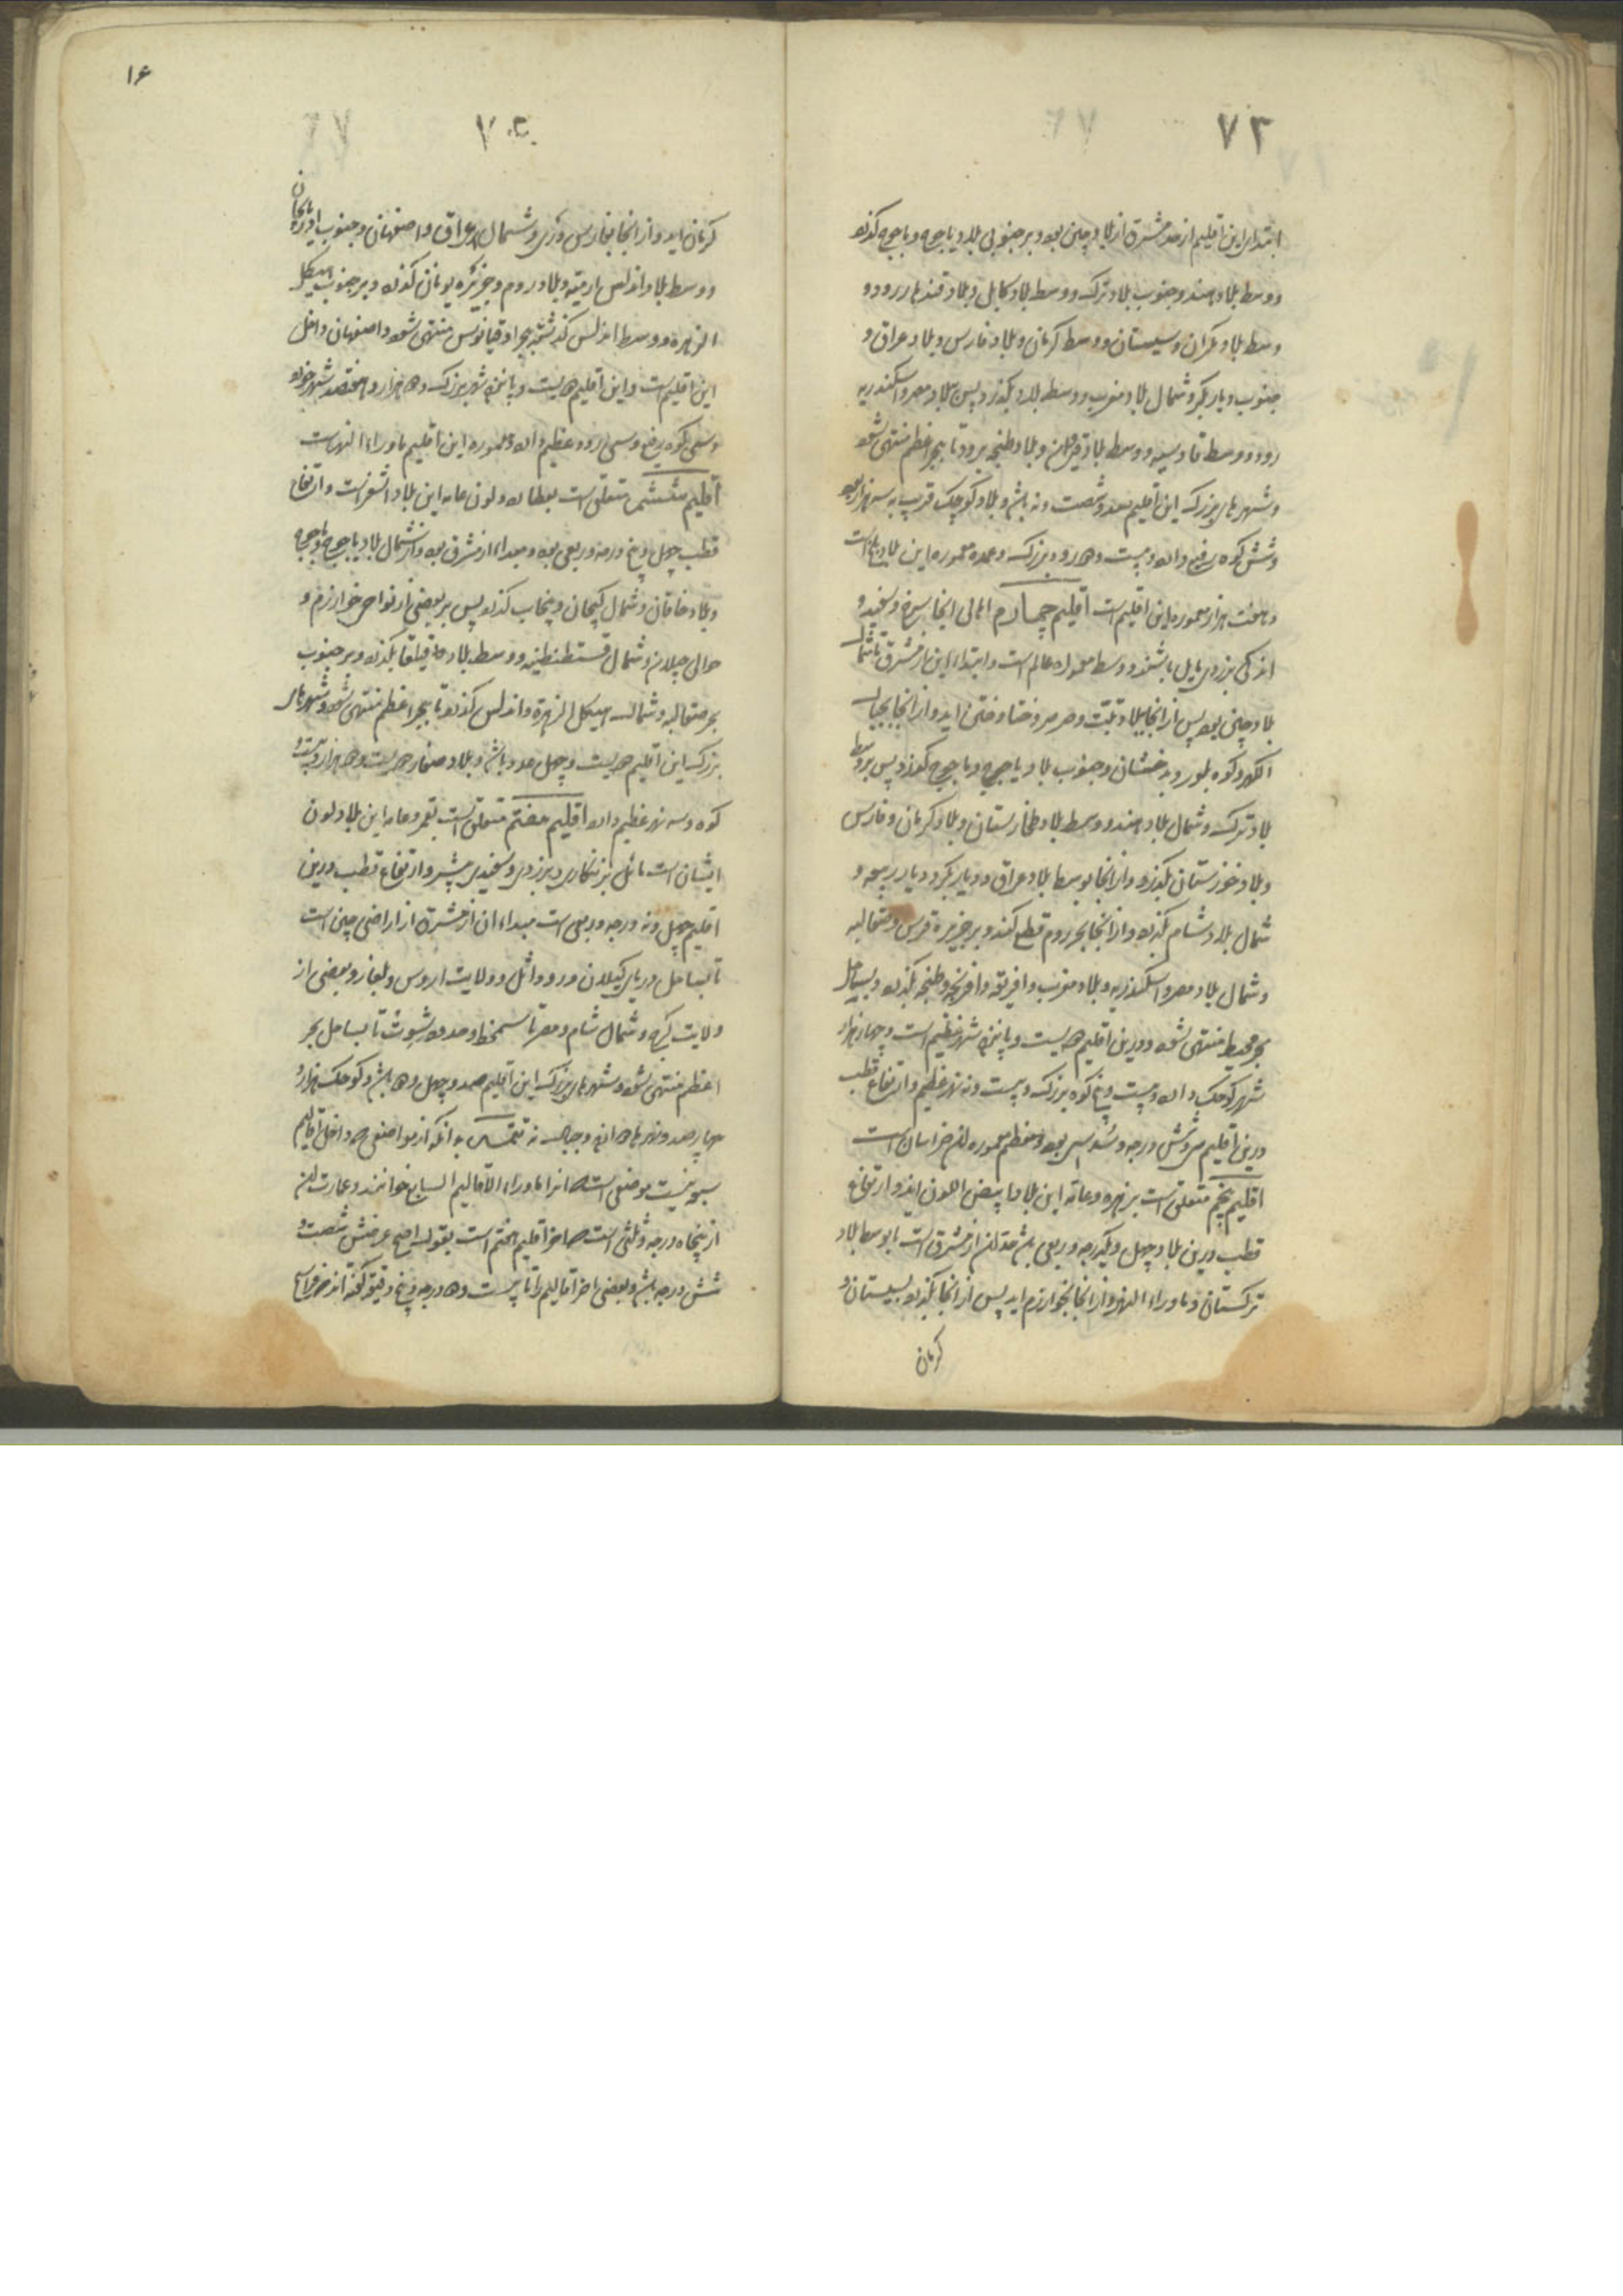 ۷۳
ابتدای این اقلیم از حد مشرق از بلاد چین بود و بر جنوبی بلاد یاجوج و ماجوج گذرد
و وسط بلاد هند و جنوب بلاد ترک و وسط بلاد کابل و بلاد قندهار رود و
وسط بلاد مکران و سیستان و وسط کرمان و بلاد فارس و بلاد عراق و
جنوب دیار بکر و شمال بلاد مغرب و وسط بلاد بگذرد پس ببلاد مصر و اسکندریه
رود و وسط قادسیه و وسط بلاد قیروان و بلاد طنجه برود تا ببحر اعظم منتهی شود
و شهرهای بزرگ این اقلیم صد و شصت و نه باشد و بلاد کوچک قریب به سه هزار بود
و شش کوه رفیع دارد و بیست و دو رود بزرگ و عمده معموره این بلاد
و هفت هزار معموره این اقلیم است اقلیم چهارم اهالی انجا سرخ و سفید و
اندکی بزردی مایل باشند و وسط معموره عالم است و ابتداء این از مشرق تا شمال
بلاد چین بود پس از انجا ببلاد تبت و صرصر و ختا و ختن اید و از انجا بجبال
و کوه بلور و بدخشان و جنوب بلاد یاجوج و ماجوج گذرد پس بر وسط
بلاد ترک و شمال بلاد هند و وسط بلاد طخارستان و بلاد کرمان و فارس
و بلاد خوزستان بگذرد و از انجا بوسط بلاد عراق و دیار بکر و دیار ربیعه و
شمال بلاد شام بگذرد و از انجا بحر روم قطع کند و بر جزیره قبرس و صقالیه
و شمال بلاد مصر و اسکندریه و بلاد مغرب و افریقه و افرنجه و طنجه بگذرد و بساحل
بحر محیط منتهی شود و درین اقلیم دویست و پانزده شهر عظیم است و چهار هزار
شهر کوچک دارد و بیست و پنج کوه بزرگ و بیست و نه نهر عظیم و ارتفاع قطب
درین اقلیم سی و شش درجه و بود و معظم معموره ان خراسان است
اقلیم پنجم متعلق است بزهره و عامه این بلاد ابیض اللون اید و ارتفاع
قطب درین بلاد چهل و یکدرجه و ربعی باشد از مشرق است با وسط بلاد
ترکستان و ماوراء النهر و از انجا بخوارزم اید پس از انجا بگذرد بسیستان و
کرمان
۱۶
۷
کرمان اید و از انجا بفارس و ری و شمال عراق و اصفهان و جنوب اذربایجان
و وسط بلاد اندلس ارمنیه و بلاد روم و جزیره یونان گذرد و بر جنوب هیکل
الزهره و وسط اندلس گذشته ببحر اوقیانوس منتهی شود و اصفهان داخل
این اقلیم است و این اقلیم دویست و پانزده شهر بزرگ و دو هزار و هفتصد شهر خورد
و سی کوه رفیع و سی رود عظیم دارد و معموره این اقلیم ماوراء النهرست
اقلیم ششم متعلق است بعطارد و لون عامه این بلاد اشقر است و ارتفاع
قطب چهل و پنج درجه و ربعی بود و مبداء از مشرق بود و از شمال بلاد یاجوج و ماجوج
و بلاد خاقان و شمال کیجان و پنجاب گذرد پس بر بعضی از نواحی خوارزم و
حوالی جیلان و شمال قسطنطنیه و وسط بلاد بگذرد و بر جنوب
بحر صقالبه و شمال هیکل الزهرة و اندلس گذرد تا ببحر اعظم منتهی شود و شهرهای
بزرگ این اقلیم دویست و چهل عدد باشد و بلاد صغار دویست و دو هزار و بیست و
کوه و سه نهر عظیم دارد اقلیم هفتم متعلق است بقمر و عامه این بلاد لون
ایشان است مائل بزنگاری و بزردی و سفیدی بیشتر و ارتفاع قطب درین
اقلیم چهل و نه درجه و ربعی است مبداء ان از مشرق از اراضی چین است
تا بساحل دریای کیلان و رود اتل و ولایت اروس و بلغار و بعضی از
ولایت کرج و شمال شام و مصر تا و حدود تا بساحل بحر
اعظم منتهی شود و شهرهای بزرگ این اقلیم صد و چهل و دو باشد و کوچک هزار و
چهار صد و نهرها و جبال نه تتمه بدانکه از مواضعی که داخل اقالیم
سبعه نیست موضعی است که انرا ماوراء الاقالیم السبع خوانند و عمارت ان
از پنجاه درجه و ثلثی است که اخر اقلیم هفتم است بقول اصح عرضش شصت و
شش درجه باشد و بعضی اخر اقالیم را تا بیست و دو درجه و پنج دقیقه گفته اند